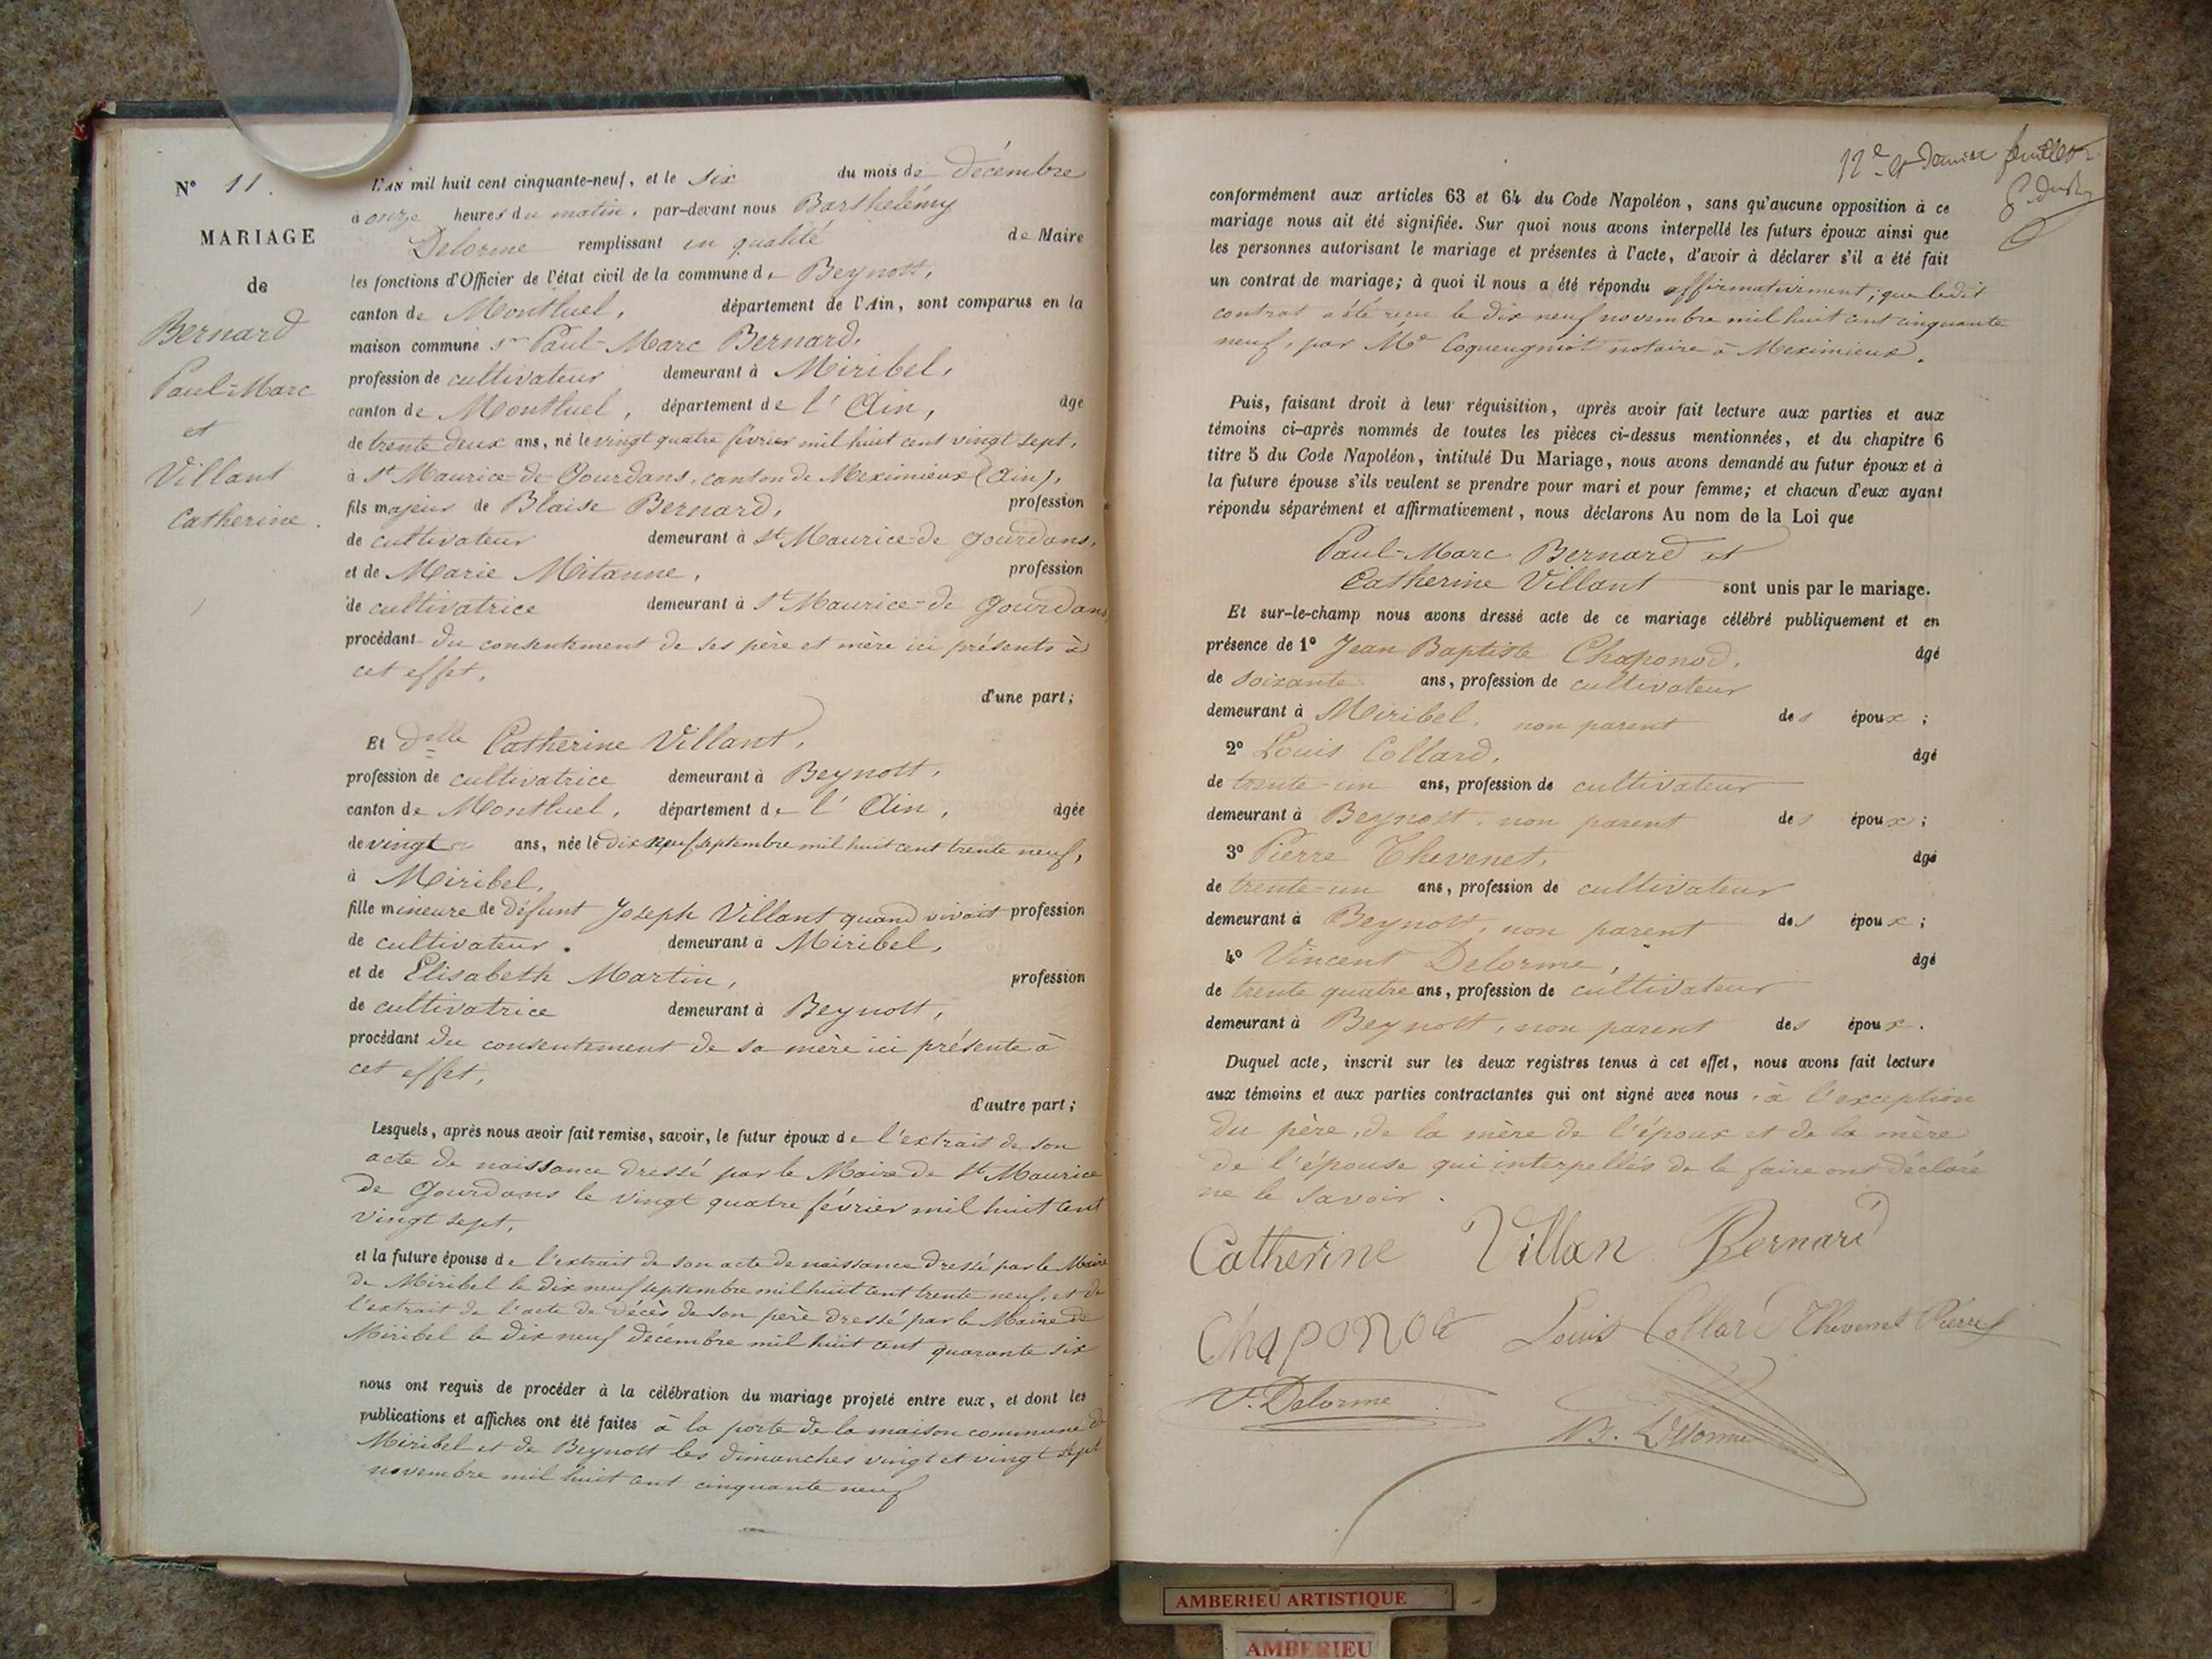 N° 11.
MARIAGE
de
Bernard
Paul-Marc
et
Villant
Catherine.
L'AN mil huit cent cinquante-neuf, et le six du mois de décembre
à onze heures du matin, par-devant nous Barthelémy
Delorme remplissant en qualité de Maire
les fonctions d'Officier de l'état civil de la commune de Beynost,
canton de Montluel, département de l'Ain, sont comparus en la
maison commune sr Paul-Marc Bernard,
profession de cultivateur demeurant à Miribel,
canton de Montluel, département de l'Ain, âgé
de trente deux ans, né le vingt quatre février mil huit cent vingt sept,
à St Maurice-de-Gourdans, canton de Meximieux (Ain),
fils majeur de Blaise Bernard, profession
de cultivateur demeurant à St Maurice-de Gourdans,
et de Marie Mitanne, profession
de cultivatrice demeurant à St Maurice-de Gourdans,
procédant du consentement de ses père et mère ici présents à
cet effet,
d'une part;
Et dlle Catherine Villant,
profession de cultivatrice demeurant à Beynost,
canton de Montluel, département de l'Ain, âgée
de vingt ans, née le dix neuf septembre mil huit cent trente neuf,
à Miribel,
fille mineure de défunt Joseph Villant quand vivait profession
de cultivateur. demeurant à Miribel,
et de Elisabeth Martin, profession
de cultivatrice demeurant à Beynost,
procédant du consentement de sa mère ici présente à
cet effet,
d'autre part;
Lesquels, après nous avoir fait remise, savoir, le futur époux de l'extrait de son
acte de naissance dressé par le Maire de St Maurice
de Gourdans le vingt quatre février mil huit cent
vingt sept,
et la future épouse de l'extrait de son acte de naissance dressé par le Maire
de Miribel le dix neuf septembre mil huit cent trente neuf, et de
l'extrait de l'acte de décès de son père dressé par le Maire de
Miribel le dix neuf décembre mil huit cent quarante six
nous ont requis de procéder à la célébration du mariage projeté entre eux, et dont les
publications et affiches ont été faites à la porte de la maison commune de
Miribel et de Beynost les dimanches vingt et vingt sept
novembre mil huit cent cinquante neuf
12e et dernier feuillet
conformément aux articles 63 et 64 du Code Napoléon, sans qu'aucune opposition à ce
mariage nous ait été signifiée. Sur quoi nous avons interpellé les futurs époux ainsi que
les personnes autorisant le mariage et présentes à l'acte, d'avoir à déclarer s'il a été fait
un contrat de mariage; à quoi il nous a été répondu affirmativement; que ledit
contrat a été reçu le dix neuf novembre mil huit cent cinquante
neuf, par Me Coqueugniot notaire à Meximieux.
Puis, faisant droit à leur réquisition, après avoir fait lecture aux parties et aux
témoins ci-après nommés de toutes les pièces ci-dessus mentionnées, et du chapitre 6
titre 5 du Code Napoléon, intitulé Du Mariage, nous avons demandé au futur époux et à
la future épouse s'ils veulent se prendre pour mari et pour femme; et chacun d'eux ayant
répondu séparément et affirmativement, nous déclarons Au nom de la Loi que
Paul-Marc Bernard et
Catherine Villant sont unis par le mariage.
Et sur-le-champ nous avons dressé acte de ce mariage célébré publiquement et en
présence de 1° Jean Baptiste Chaponod, âgé
de soixante ans, profession de cultivateur
demeurant à Miribel, non parent des époux;
2° Louis Collard, âgé
de trente-un ans, profession de cultivateur
demeurant à Beynost, non parent des époux;
3° Pierre Thevenet, âgé
de trente-un ans, profession de cultivateur
demeurant à Beynost, non parent des époux;
4° Vincent Delorme, âgé
de trente quatre ans, profession de cultivateur
demeurant à Beynost, non parent des époux.
Duquel acte, inscrit sur les deux registres tenus à cet effet, nous avons fait lecture
aux témoins et aux parties contractantes qui ont signé avec nous, à l'exception
du père, de la mère de l'époux et de la mère
de l'épouse qui interpellés de le faire ont déclaré
ne le savoir.
Catherine Villan Bernard
Chaponod Louis Collard Thevenet Pierre
V. Delorme B. Delorme
AMBERIEU ARTISTIQUE
AMBERIEU